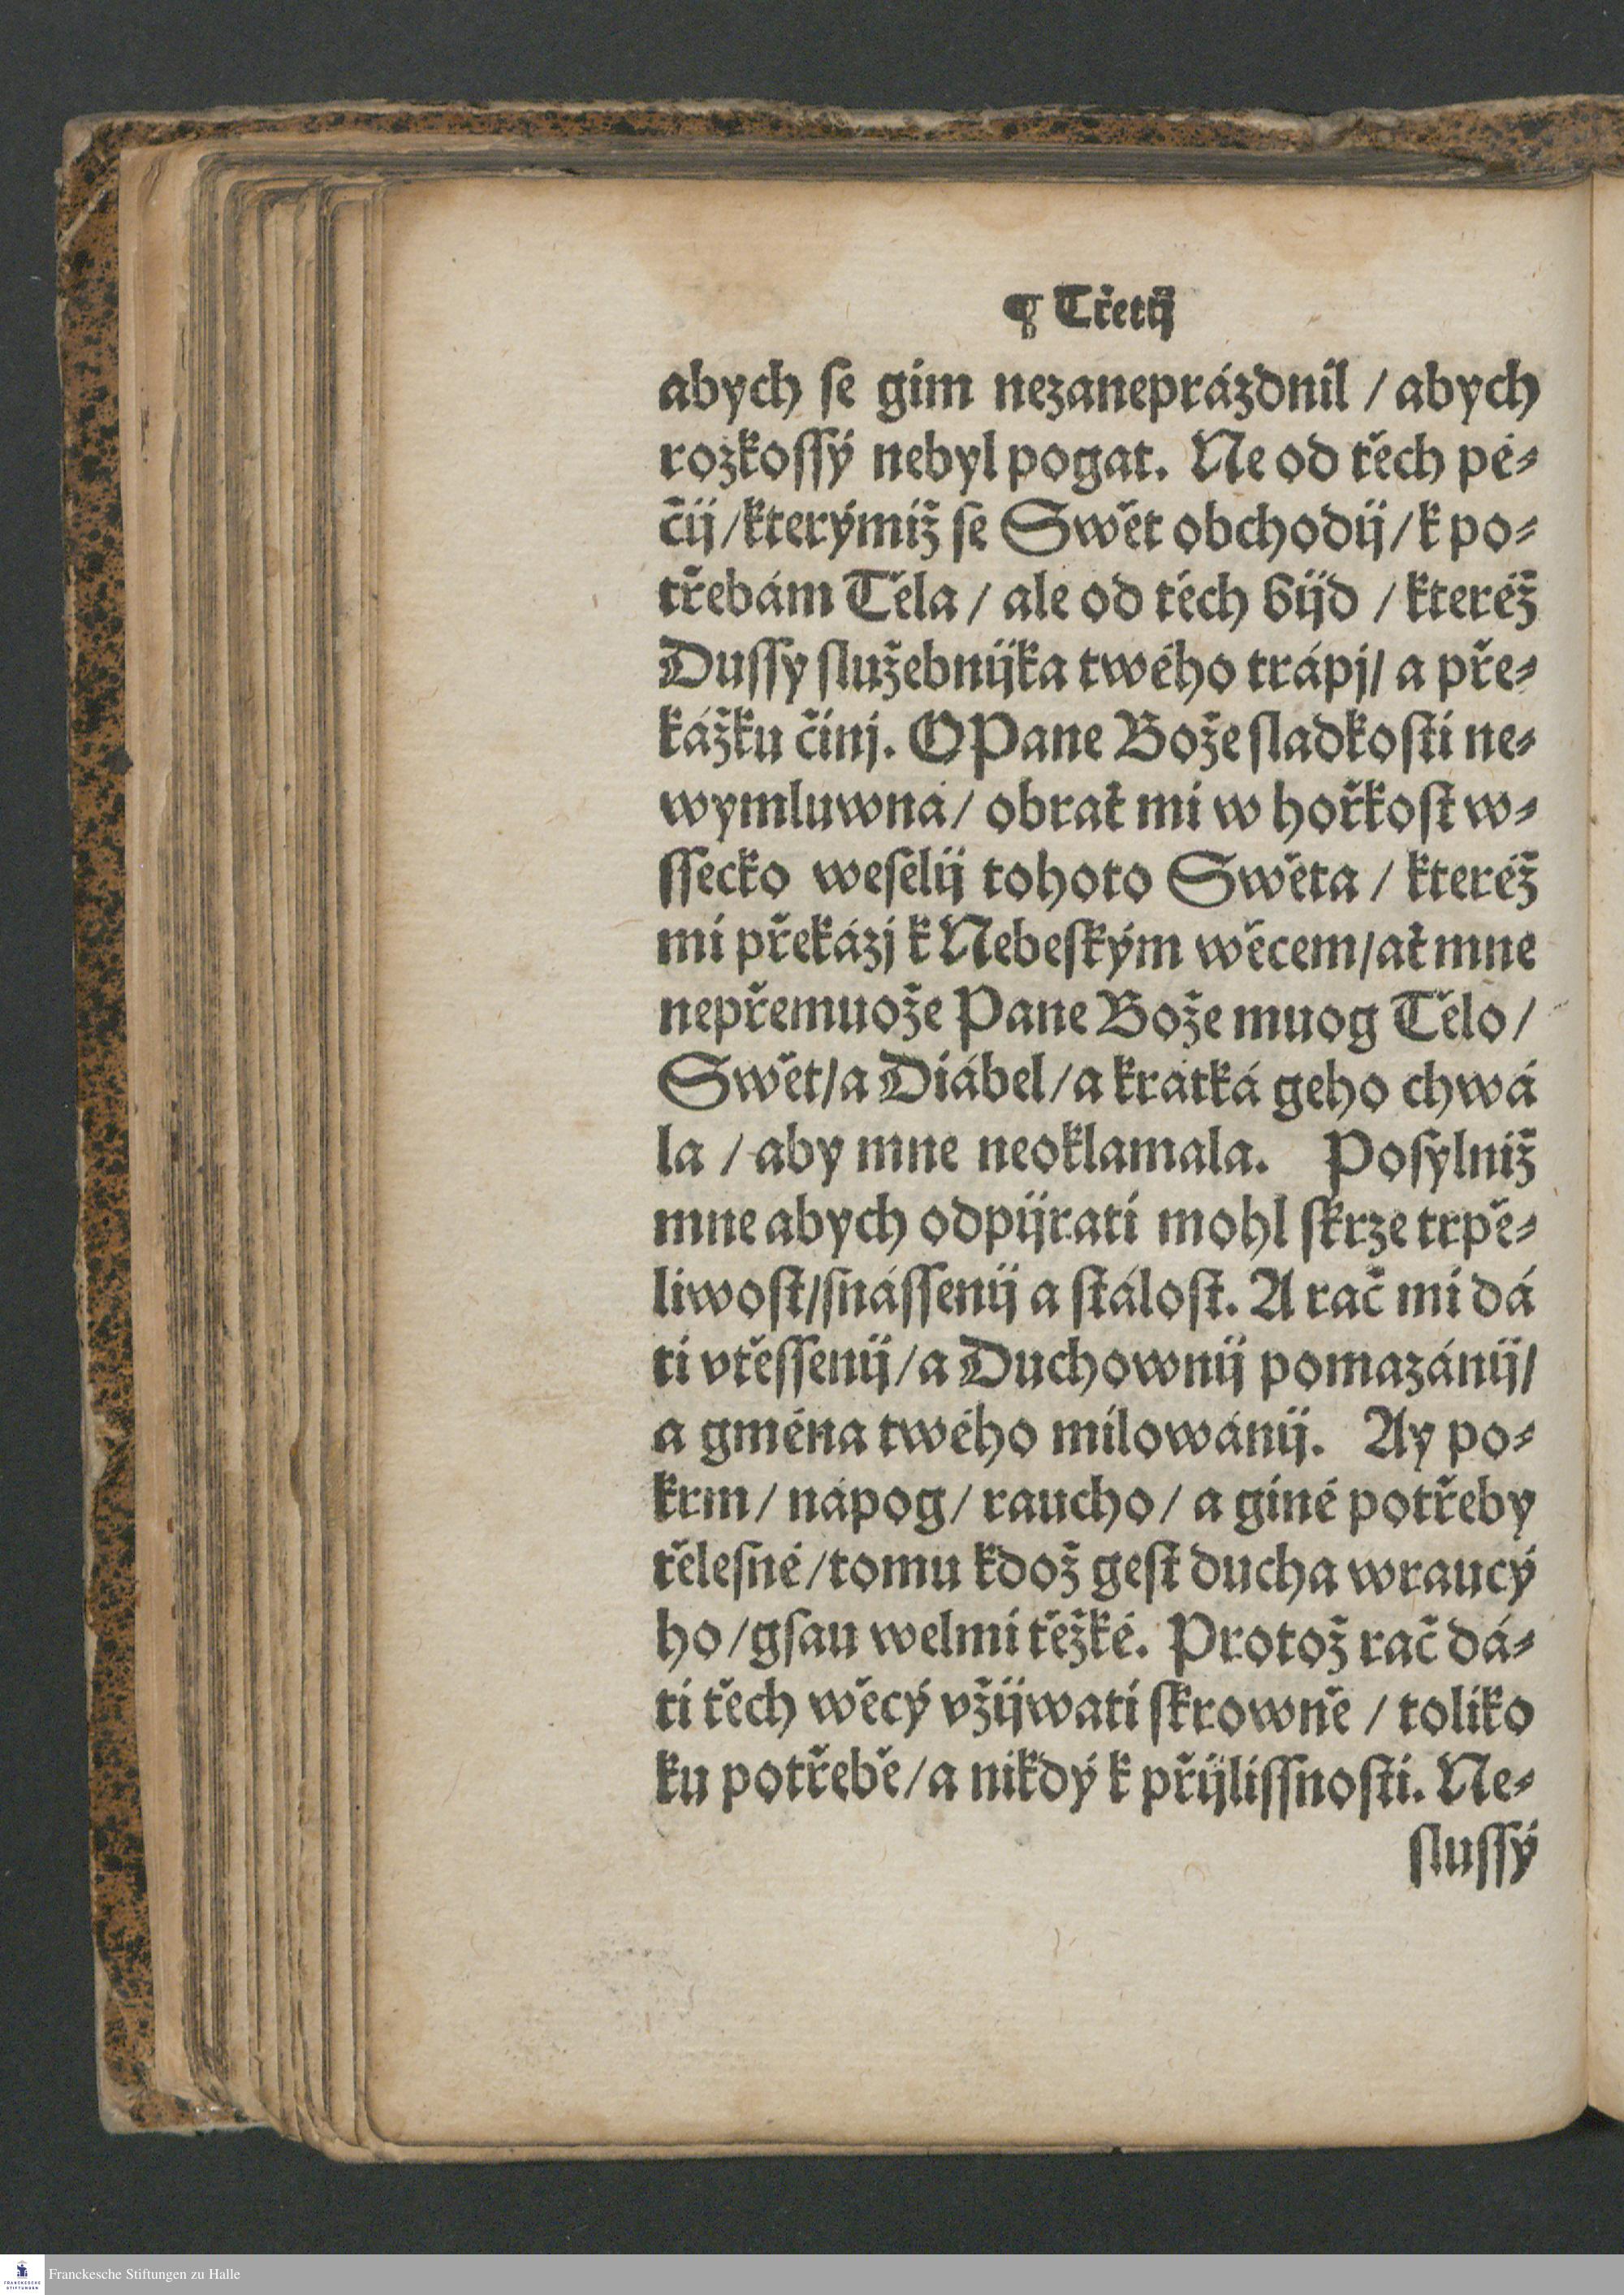 ¶ Třetij
abych ſe gim nezaneprázdnil / abych
rozkoſſý nebyl pogat. Ne od těch pé⸗
čij /kterýmiž ſe Swět obchodij / k po⸗
třebám Těla / ale od těch bijd / kteréž
Duſſy ſlužebnijka twého trápj / a pře⸗
kážku činj. O Pane Bože ſladkoſti ne⸗
wymluwná / obrať mi w hořkoſt w⸗
ſſecko weſelij tohoto Swěta / kteréž
mi překázj k Nebeſkým wěcem / ať mne
nepřemuože Pane Bože muog Tělo /
Swět / a Diábel / a krátká geho chwá
la / aby mne neoklamala. Poſylniž
mne abych odpijrati mohl ſkrze trpě⸗
liwoſt / ſnáſſenij a ſtáloſt. A rač mi dá
ti vtěſſenij / a Duchownij pomazánij /
a gména twého milowánij. Ay po⸗
krm / nápog / raucho / a giné potřeby
tělesné / tomu kdož geſt ducha wraucý
ho / gſau welmi těžké. Protož rač dá⸗
ti těch wěcý vžijwati ſkrowně / toliko
ku potřebě / a nikdý k přijliſſnoſti. Ne⸗
ſluſſý
Franckesche Stiftungen zu Halle